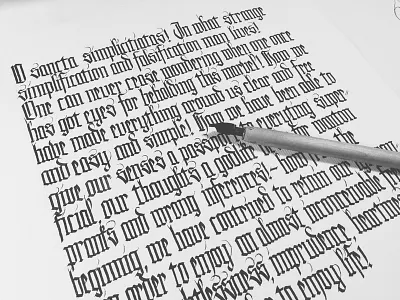 O sancta simplicitatas! In what strange
simplification and falsification man lives!
One can never cease wondering when once one
has got eyes for beholding this marvel! How we
have made everything around us clear and free
and easy and simple! How we have been able to
give our senses a passport to everything super-
ficial, our thoughts a godlike for wanton
pranks and wrong inferences! – how from the
beginning, we have contrived to retain our
in order to enjoy an almost inconceivable
imprudence, heartiness
to enjoy life!